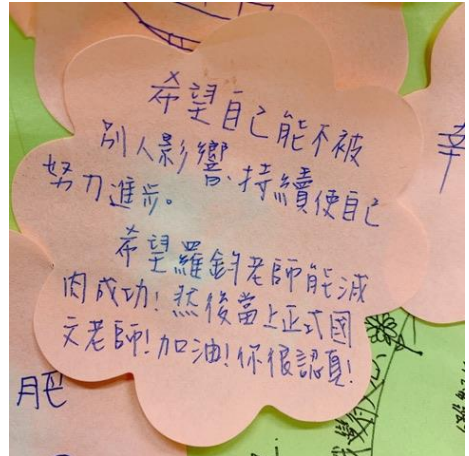 希望自己能不被
別人影響、持續使自己
努力進步。
希望羅鈞老師能減
肉成功!然後當上正式國
文老師!加油!你很認真!
肥
幸